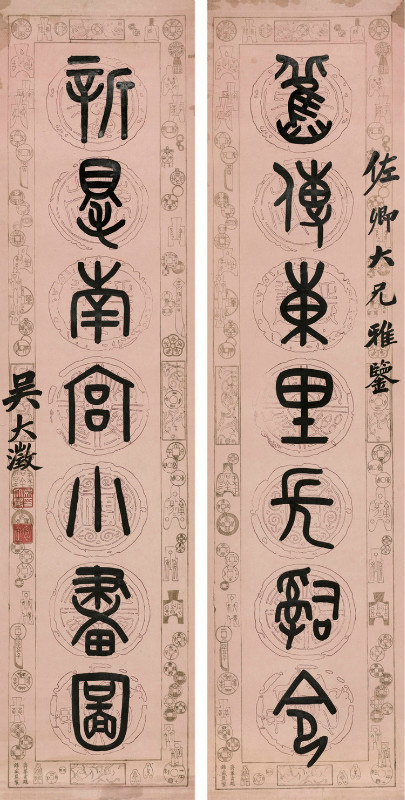 佐卿大兄雅鑒
舊傳東里長辭令
新南宮小畫圖
吳大澂